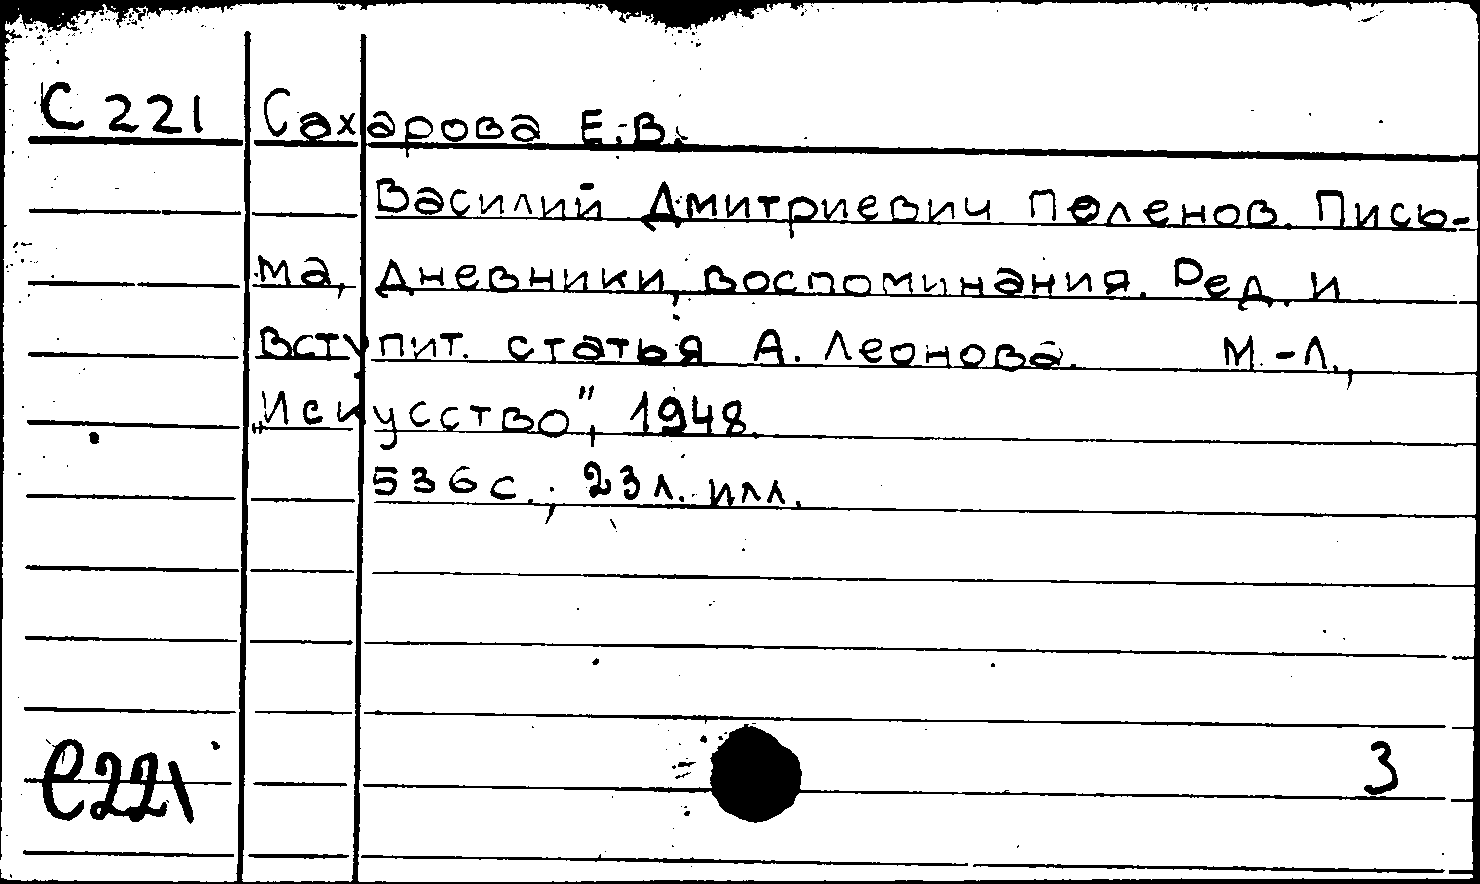 С 221 Сахарова Е.В.
Василий Дмитриевич Поленов. Пись-
ма, дневники, воспоминания. Ред. и
вступит. статья А. Леонова. М.-Л.,
„Искусство", 1948.
536 с., 23 л. илл.
С221 3